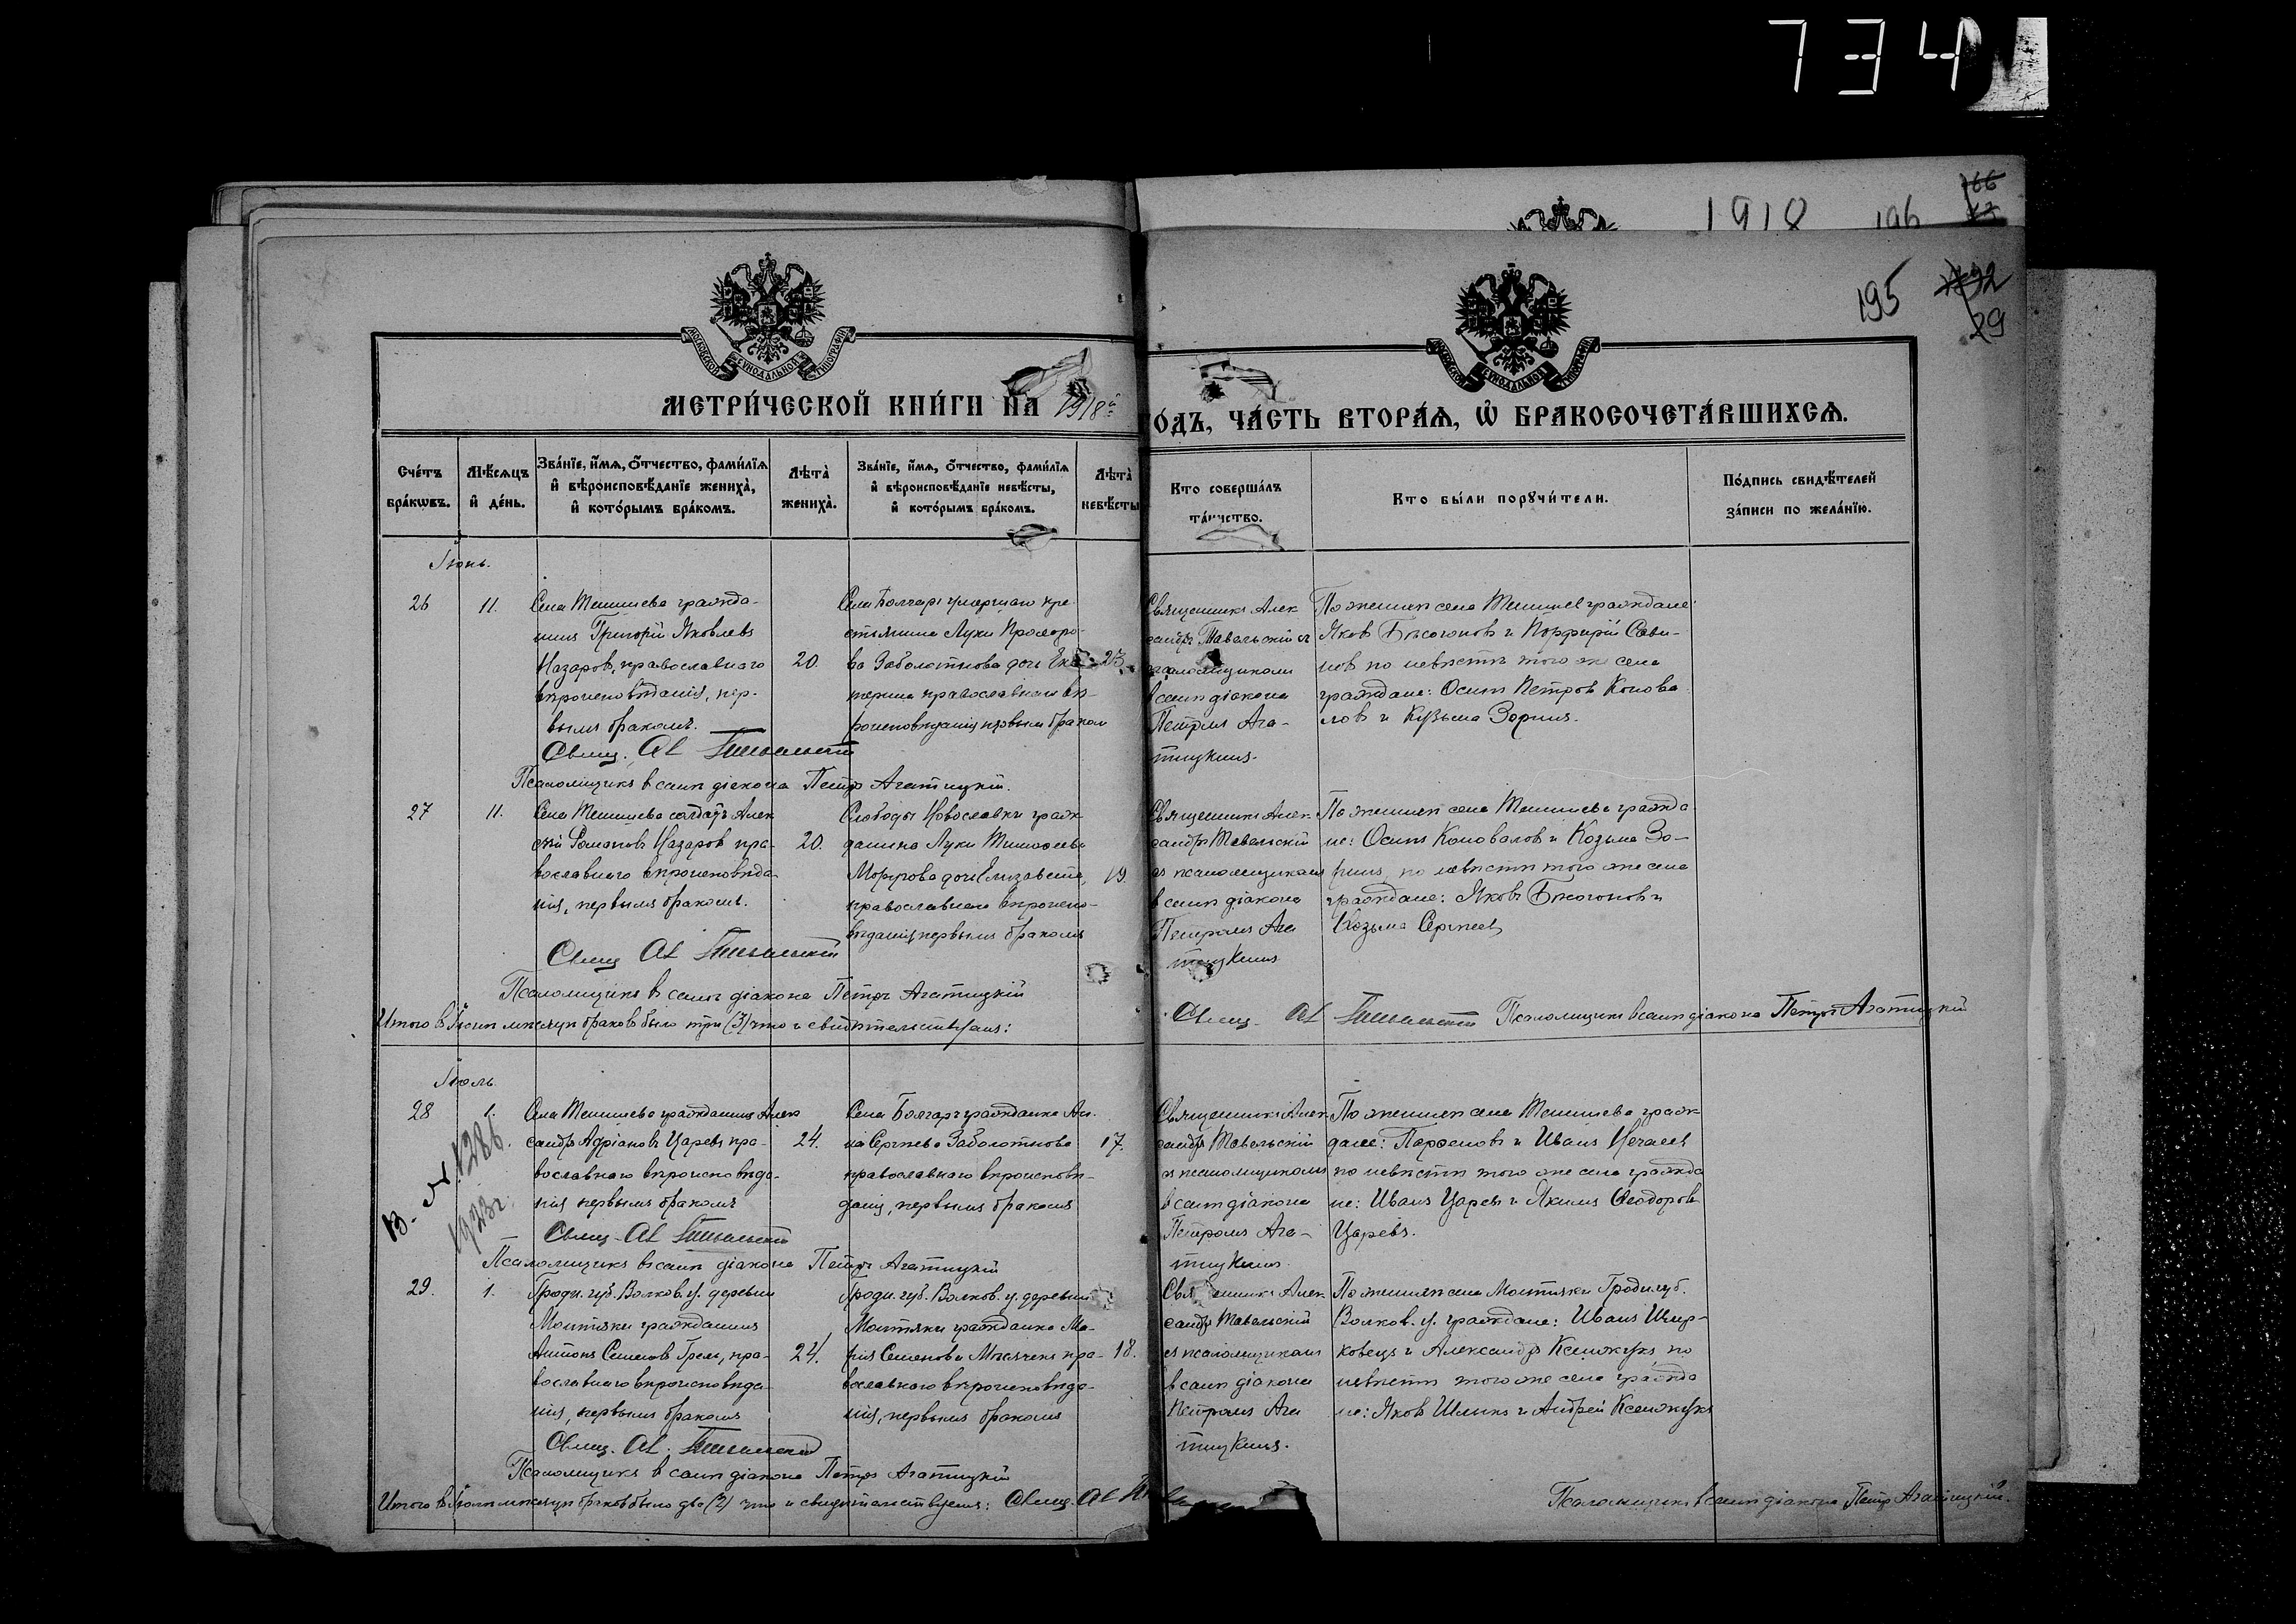 734
1918 196
195
29
МОСКОВСКОЙ СѴНОДАЛЬНОЙ ТИПОГРАФІИ
МОСКОВСКОЙ СѴНОДАЛЬНОЙ ТИПОГРАФІИ
МЕТРИ́ЧЕСКОЙ КНИ́ГИ НА 1918й
ОДЪ, ЧА́СТЬ ВТОРА́Ѧ, Ѿ БРАКОСОЧЕТА́ВШИХСѦ.
Сче́тъ бра́кѡвъ.
Мѣ́сѧцъ и҆ де́нь.
Зва́нїе, и҆́мѧ, о҆́тчество, фами́лїѧ и҆ вѣроисповѣ́данїе жениха̀, и҆ кото́рымъ бра́комъ.
Лѣта̀ жениха̀.
Зва́нїе, и҆́мѧ, о҆́тчество, фами́лїѧ и҆ вѣроисповѣ́данїе невѣ́сты, и҆ кото́рымъ бра́комъ.
Лѣта̀ невѣ́сты
Кто соверша́лъ та́инство.
Кто бы́ли порꙋчи́тели.
По́дпись свидѣ́телей за́писи по жела́нїю.
Іюнь.
26
11.
Села Тенишева гражда-
нинъ Григорій Яковлевъ
Назаровъ, православнаго
вѣроисповѣданія, пер-
вымъ бракомъ.
20.
Села Болгаръ умершаго кре-
стьянина Луки Прохоро-
ва Заболотнова дочь Ека-
терина православнаго вѣ-
роисповѣданія первымъ бракомъ
23
Священникъ Алек
сандръ Тавельскій съ
псаломщикомъ
в санѣ діакона
Петромъ Ага-
тицкимъ.
По женихѣ села Тенишев граждане:
Яковъ Бѣсогоновъ и Порфирій Сави-
новъ по невѣстѣ того же села
граждане: Осипъ Петровъ Конова
ловъ и Кузьма Зоринъ.
Свящ. Ал. Тавельскій
Псаломщикъ в санѣ діакона Петръ Агатицкій.
27
11.
Села Тенишева солдатъ Алек
сѣй Романовъ Назаровъ пра-
вославнаго вѣроисповѣда-
нія, первымъ бракомъ.
20.
Слободы Новославки граж
данина Луки Тимофеева
дочь Елизавета,
православнаго вѣроиспо-
вѣданія, первымъ бракомъ
19.
Священникъ Алек
сандръ Тавельскій
съ псаломщикомъ
в санѣ діакона
Петромъ Ага
тицкимъ
По женихѣ села Тенишева гражда
не: Осипъ Коноваловъ и Козьма Зо-
ринъ, по невѣстѣ того же села
граждане: Яковъ Бѣсогоновъ и
Козьма Сергѣевъ
Свящ. Ал. Тавельскій
Псаломщикъ в санѣ діакона Петръ Агатицкій
Итого в Іюнѣ мѣсяцѣ браковъ было три (3) что и свидѣтельствуемъ:
Свящ. Ал. Тавельскій Псаломщикъ в санѣ діакона Петръ Агатицкій
Іюль.
28
1.
В. № 1286.
1923 г.
Села Тенишева гражданинъ Алек
сандръ Адріановъ Царевъ пра-
вославнаго вѣроисповѣда-
нія первымъ бракомъ
24.
Села Болгаръ гражданка Ан-
на Сергѣева Заболотнова
православнаго вѣроисповѣ-
данія, первымъ бракомъ
17.
Священникъ Алек
сандръ Тавельскій
съ псаломщикомъ
в санѣ діакона
Петромъ Ага-
тицкимъ.
По женихѣ села Тенишева граж
дане: Парфеновъ и Иванъ Нечаевъ
по невѣстѣ того же села гражда
не: Иванъ Царевъ и Якимъ Ѳеодоровъ
Царевъ.
Свящ. Ал. Тавельскій
Псаломщикъ в санѣ діакона Петръ Агатицкій
29.
1.
Гродн. губ. Волков. у. деревни
Монтяки гражданинъ
Антонъ Семеновъ Грель, пра-
вославнаго вѣроисповѣда-
нія, первымъ бракомъ
24.
Гродн. губ. Волков. у. деревни
Монтяки гражданка Ма-
рія Семенова пра-
вославнаго вѣроисповѣда-
нія, первымъ бракомъ
18.
Священникъ Алек
сандръ Тавельскій
съ псаломщикомъ
в санѣ діакона
Петромъ Ага
тицкимъ.
По женихѣ села Монтяки Гродн. губ.
Волков. у. граждане: Иванъ Шер-
ковецъ и Александръ Ксенжукъ, по
невѣстѣ того же села гражда
не: Яковъ Шлыкъ и Андрей Ксенжукъ
Свящ. Ал. Тавельскій
Псаломщикъ в санѣ діакона Петръ Агатицкій
Итого в Іюлѣ мѣсяцѣ браковъ было два (2) что и свидѣтельствуемъ: Свящ. Ал.
Псаломщикъ в санѣ діакона Петръ Агатицкій.